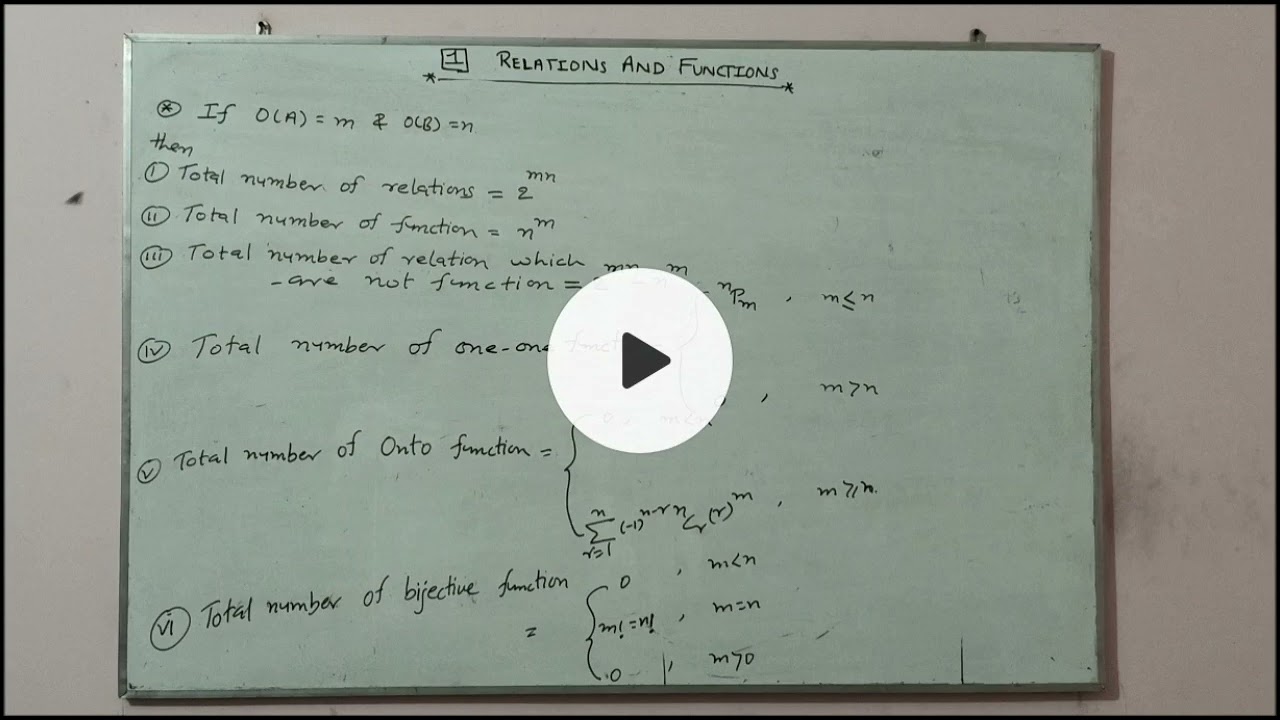 1 RELATIONS AND FUNCTIONS
* If O(A) = m & O(B) = n
then
(i) Total number of relations = 2^mn
(ii) Total number of function = n^m
(iii) Total number of relation which
are not function = 2^mn - n^m
nPm , m ≤ n
(iv) Total number of one-one function
, m > n
0, m < n
(v) Total number of Onto function =
n Σ r=1 (-1)^n-r nCr (r)^m , m ≥ n.
(vi) Total number of bijective function
=
0 , m < n
m! = n! , m = n
0 , m > 0